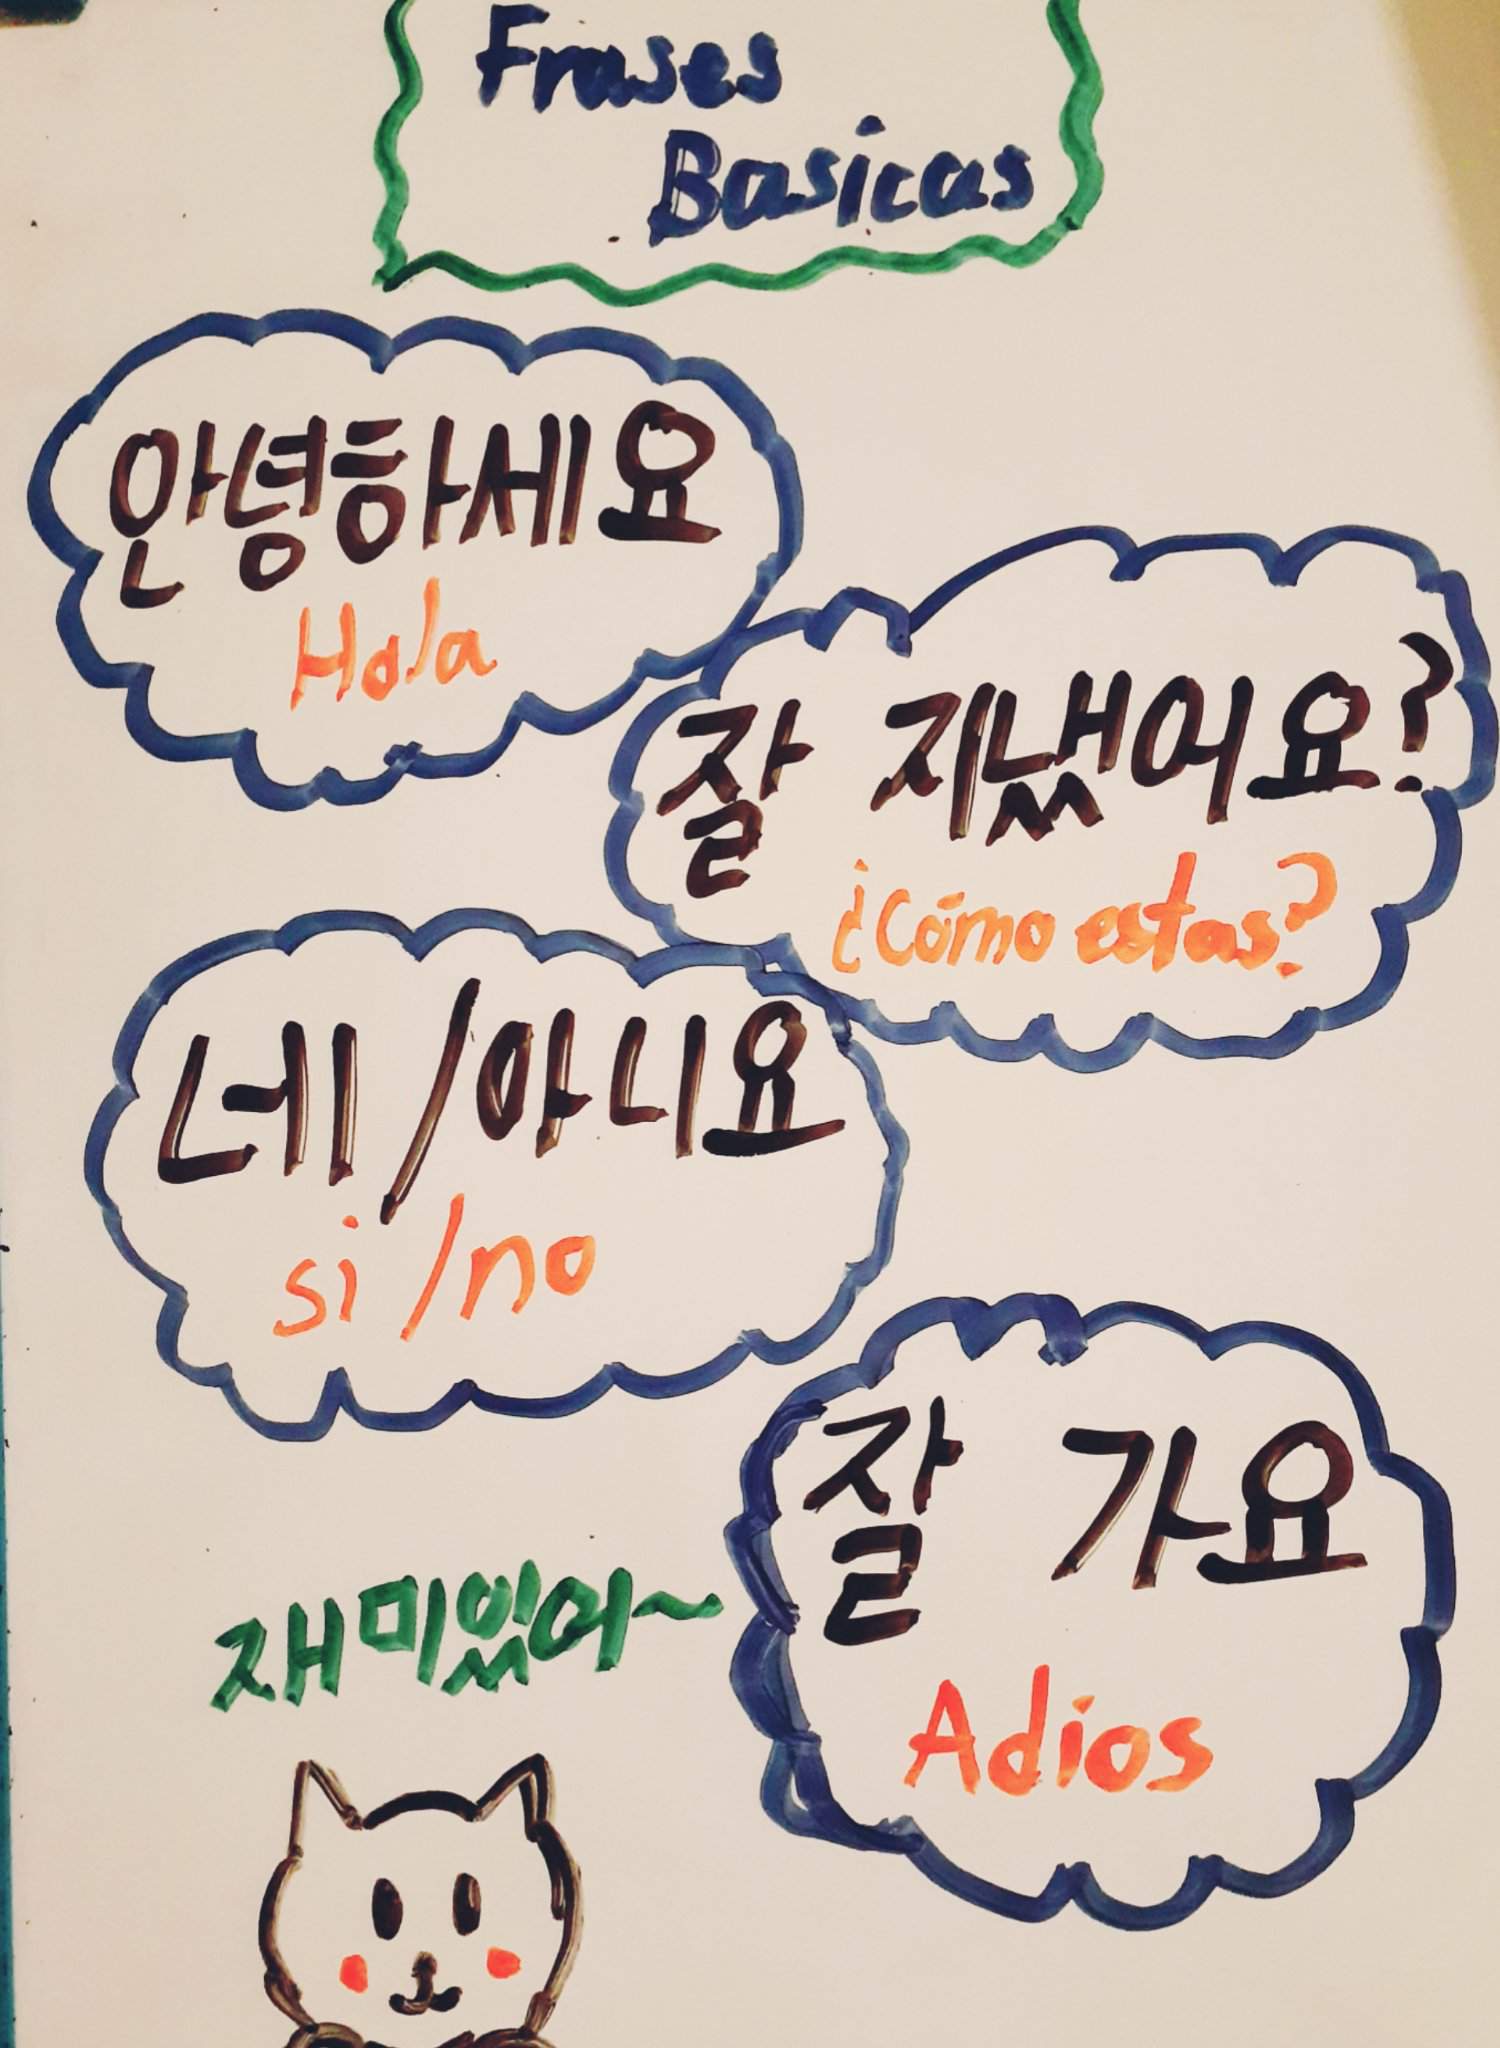 Frases
Basicas
안녕하세요
Hola
잘 지냈어요?
¿Cómo estas?
네/아니요
si/no
잘 가요
Adios
재미있어~